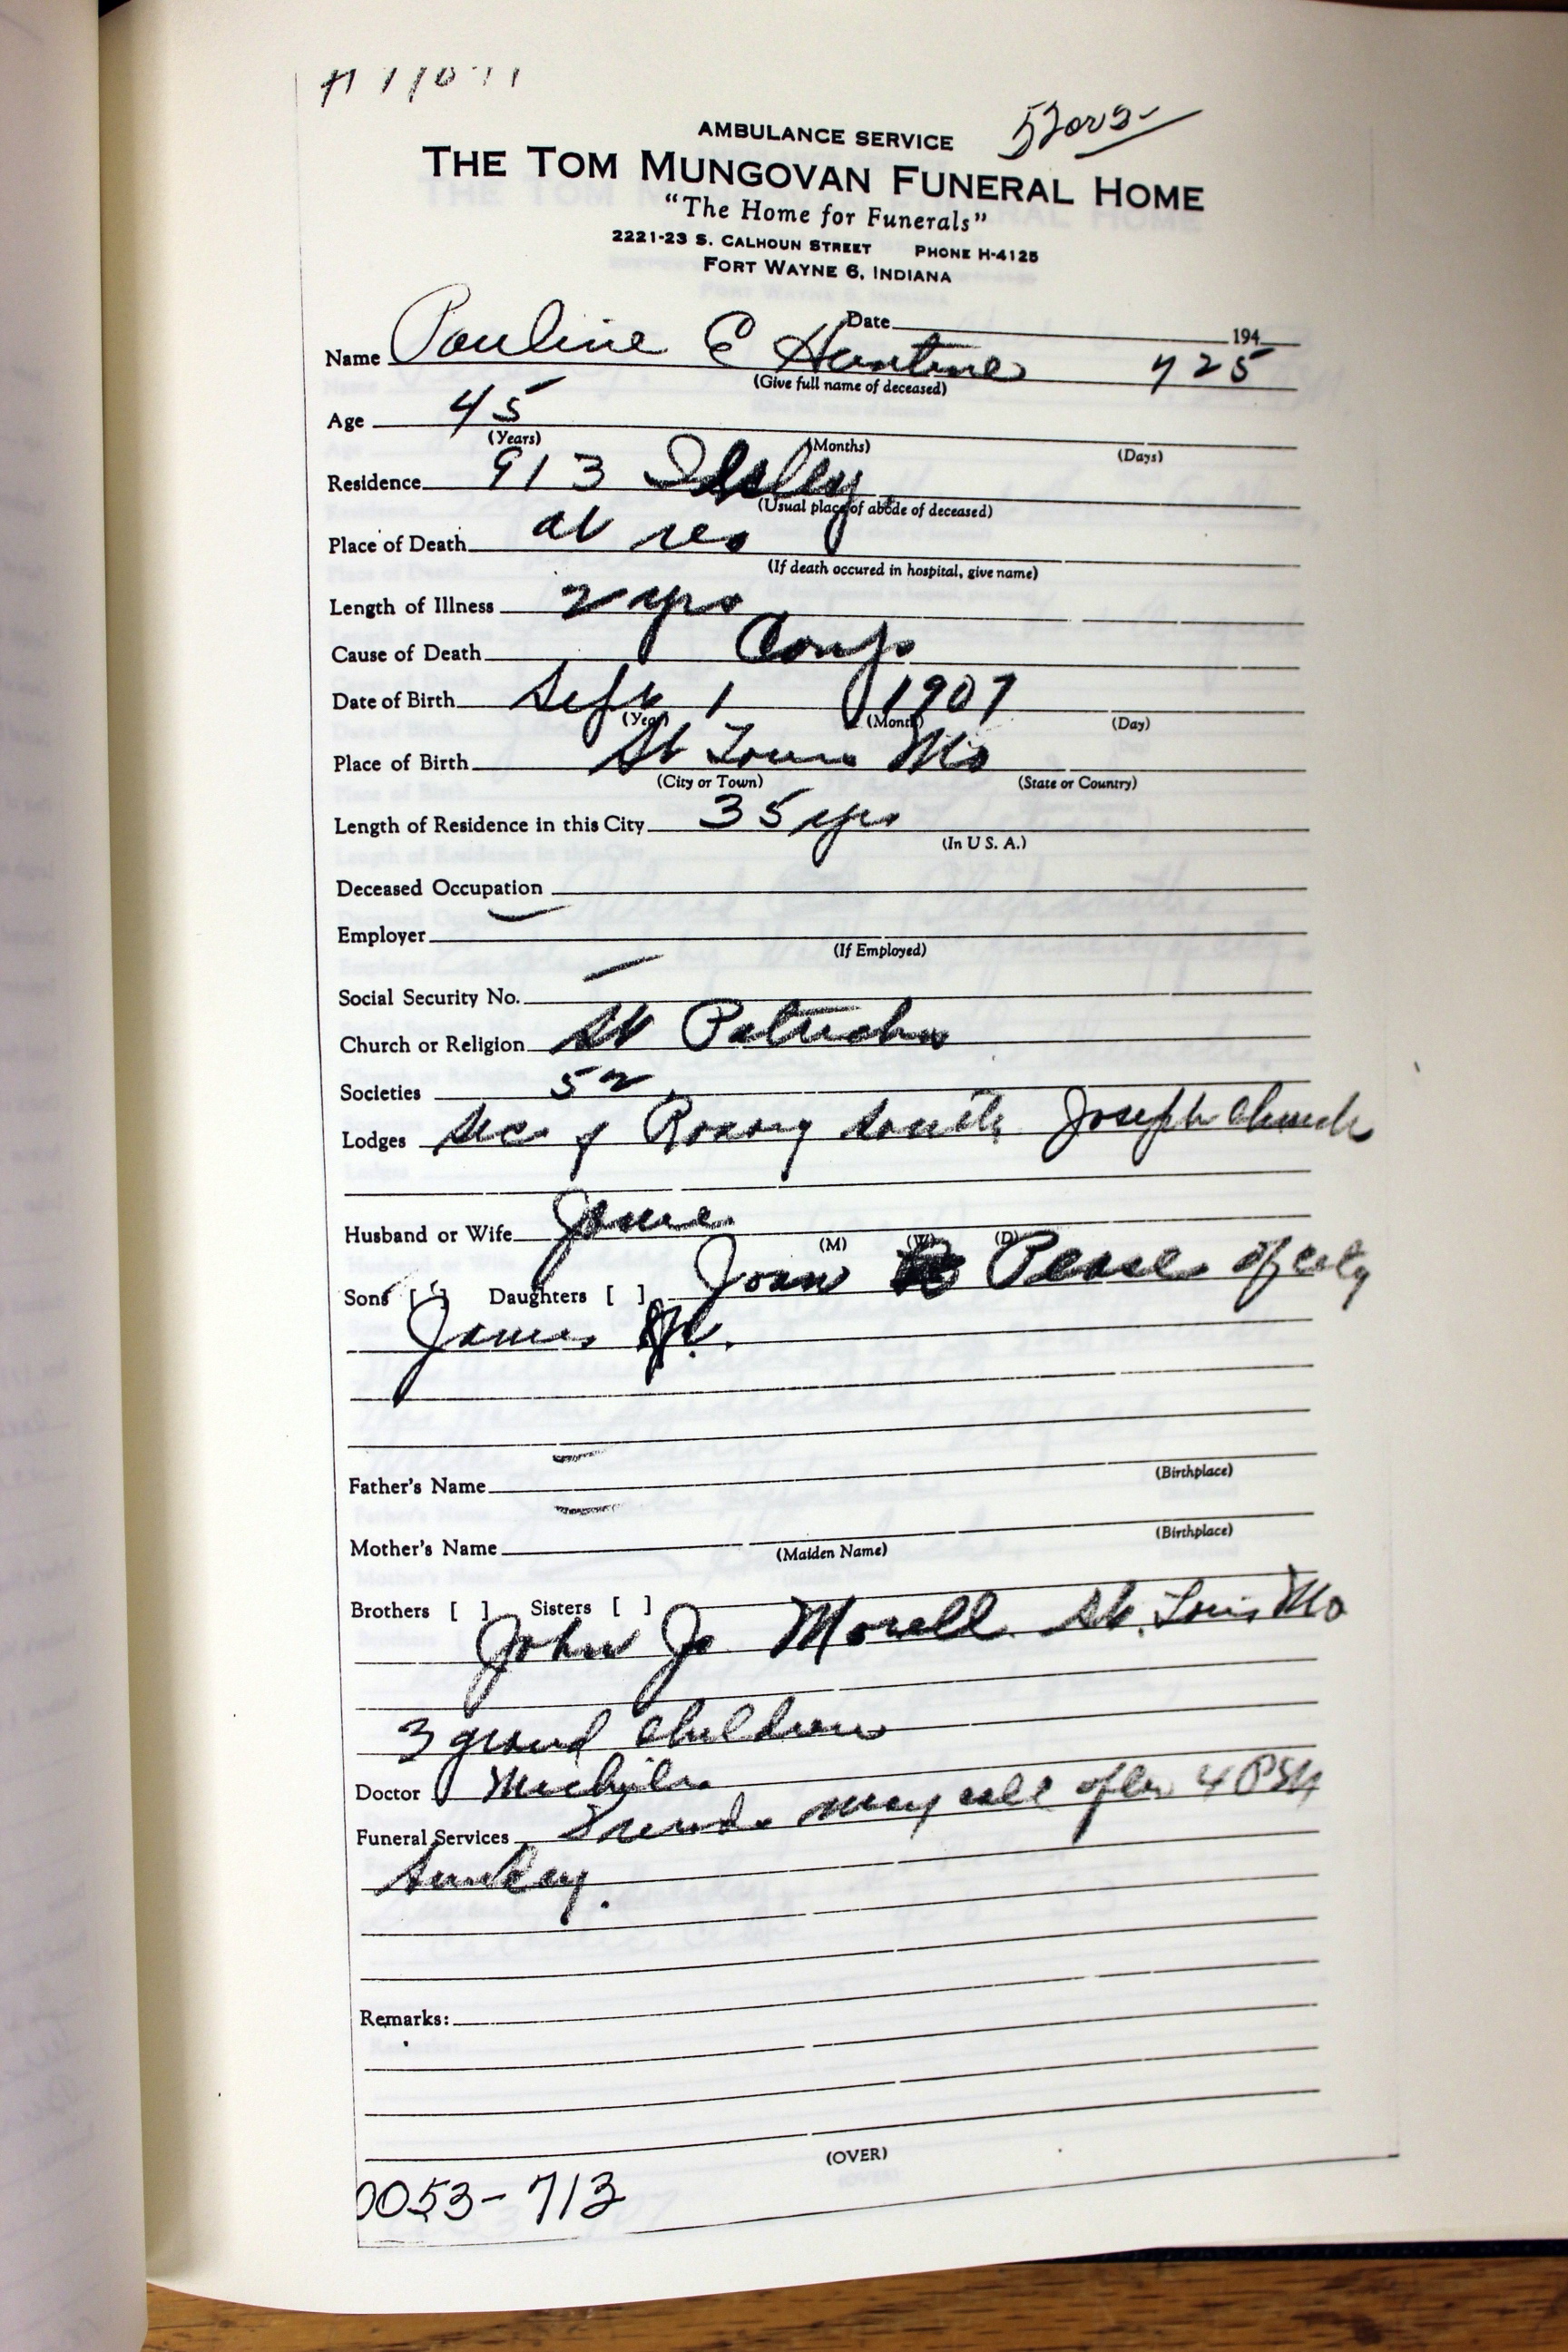 AMBULANCE SERVICE
THE TOM MUNGOVAN FUNERAL HOME
"The Home for Funerals"
2221-23 S. CALHOUN STREET PHONE H-4125
FORT WAYNE 6, INDIANA
Date 194
Name Pauline E 725
(Give full name of deceased)
Age 45
(Years) (Months) (Days)
Residence 913
(Usual place of abode of deceased)
Place of Death at res
(If death occured in hospital, give name)
Length of Illness 2 yrs
Cause of Death Comp
Date of Birth Sept 1 1907
(Year) (Month) (Day)
Place of Birth St Louis Mo
(City or Town) (State or Country)
Length of Residence in this City 35 yrs
(In U S. A.)
Deceased Occupation
Employer
(If Employed)
Social Security No.
Church or Religion St Patricks
Societies 52
Lodges Sec of Rosary Joseph Church
Husband or Wife James
(M) (W) (D)
Sons [ ] Daughters [ ] Joan Pease of city
James Jr.
Father's Name
(Birthplace)
Mother's Name
(Maiden Name) (Birthplace)
Brothers [ ] Sisters [ ]
John J Morell St. Louis Mo
3 grand children
Doctor
Funeral Services Friends may call after 4 PSM
Sunday.
Remarks:
(OVER)
0053-713